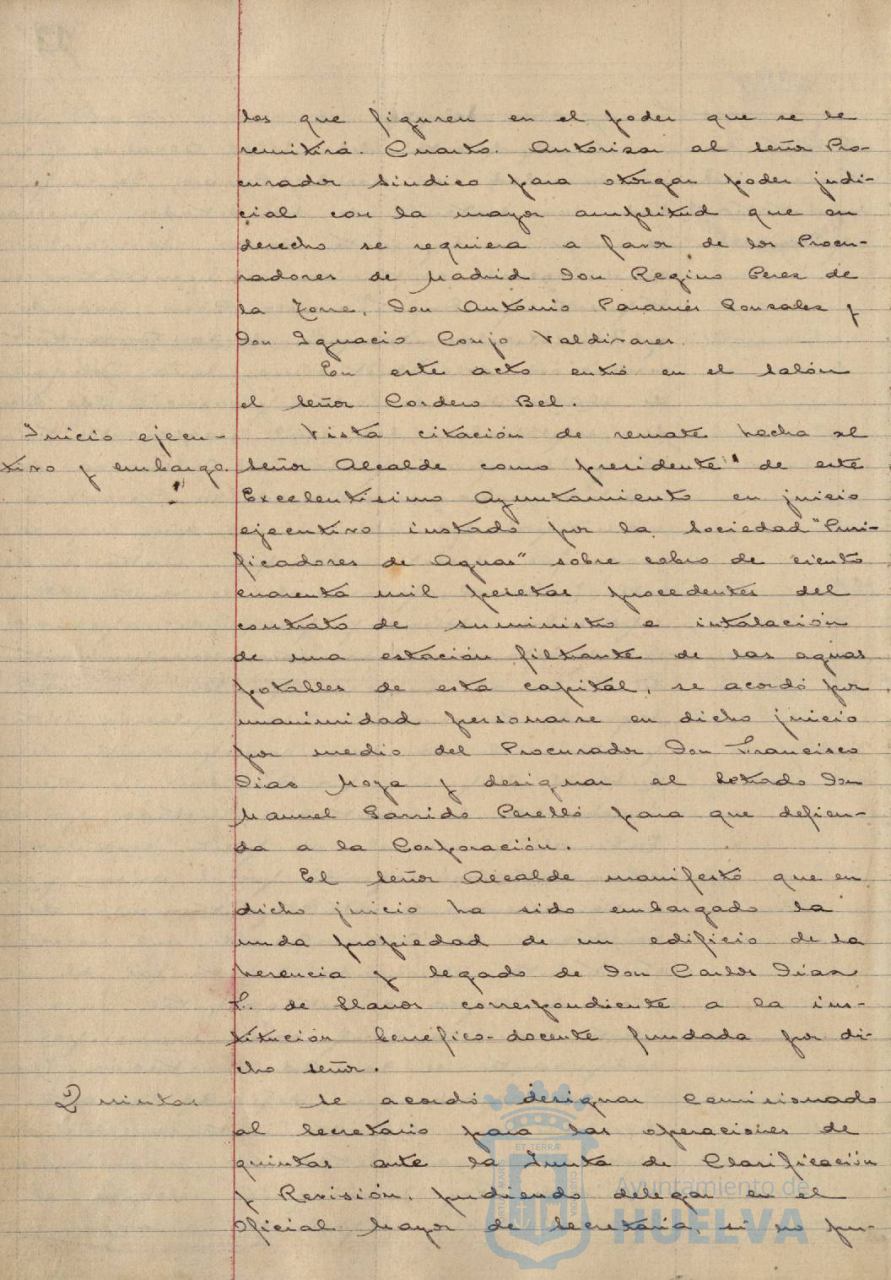 los que figuren en el poder que se le
remitirá. Cuarto. Autorizar al señor Pro-
curador Síndico para otorgar poder judi-
cial con la mayor amplitud que en
derecho se requiera a favor de los Procu-
radores de Madrid Don Regino Perez de
la Torre, Don Antonio Gonzalez y
Don Ignacio Corujo Valdivares.
En este acto entró en el salón
el señor Cordero Bel.
Juicio ejecu-
tivo y embargo.
Vista citación de remate hecha al
señor Alcalde como presidente de este
Excelentísimo Ayuntamiento en juicio
ejecutivo instado por la Sociedad "Puri-
ficadores de Aguas" sobre cobro de ciento
cuarenta mil pesetas procedentes del
contrato de suministro e intalación
de una estación filtrante de las aguas
potables de esta capital, se acordó por
unanimidad personarse en dicho juicio
por medio del Procurador Don Francisco
Dias Moya y designar al letrado Don
Manuel Garrido Perelló para que defien-
da a la Corporación.
El señor Alcalde manifestó que en
dicho juicio ha sido embargado la
nuda propiedad de un edificio de la
herencia y legado de Don Carlos Díaz
F. de Llanos correspondiente a la ins-
titución benéfico-docente fundada por di-
cho señor.
Quintas
Se acordó designar Comisionado
al Secretario para las operaciones de
quintas ante la Junta de Clasificación
y Revisión, pudiendo delegar en el
Oficial Mayor de Secretaría, si no pu-
Ayuntamiento de
HUELVA